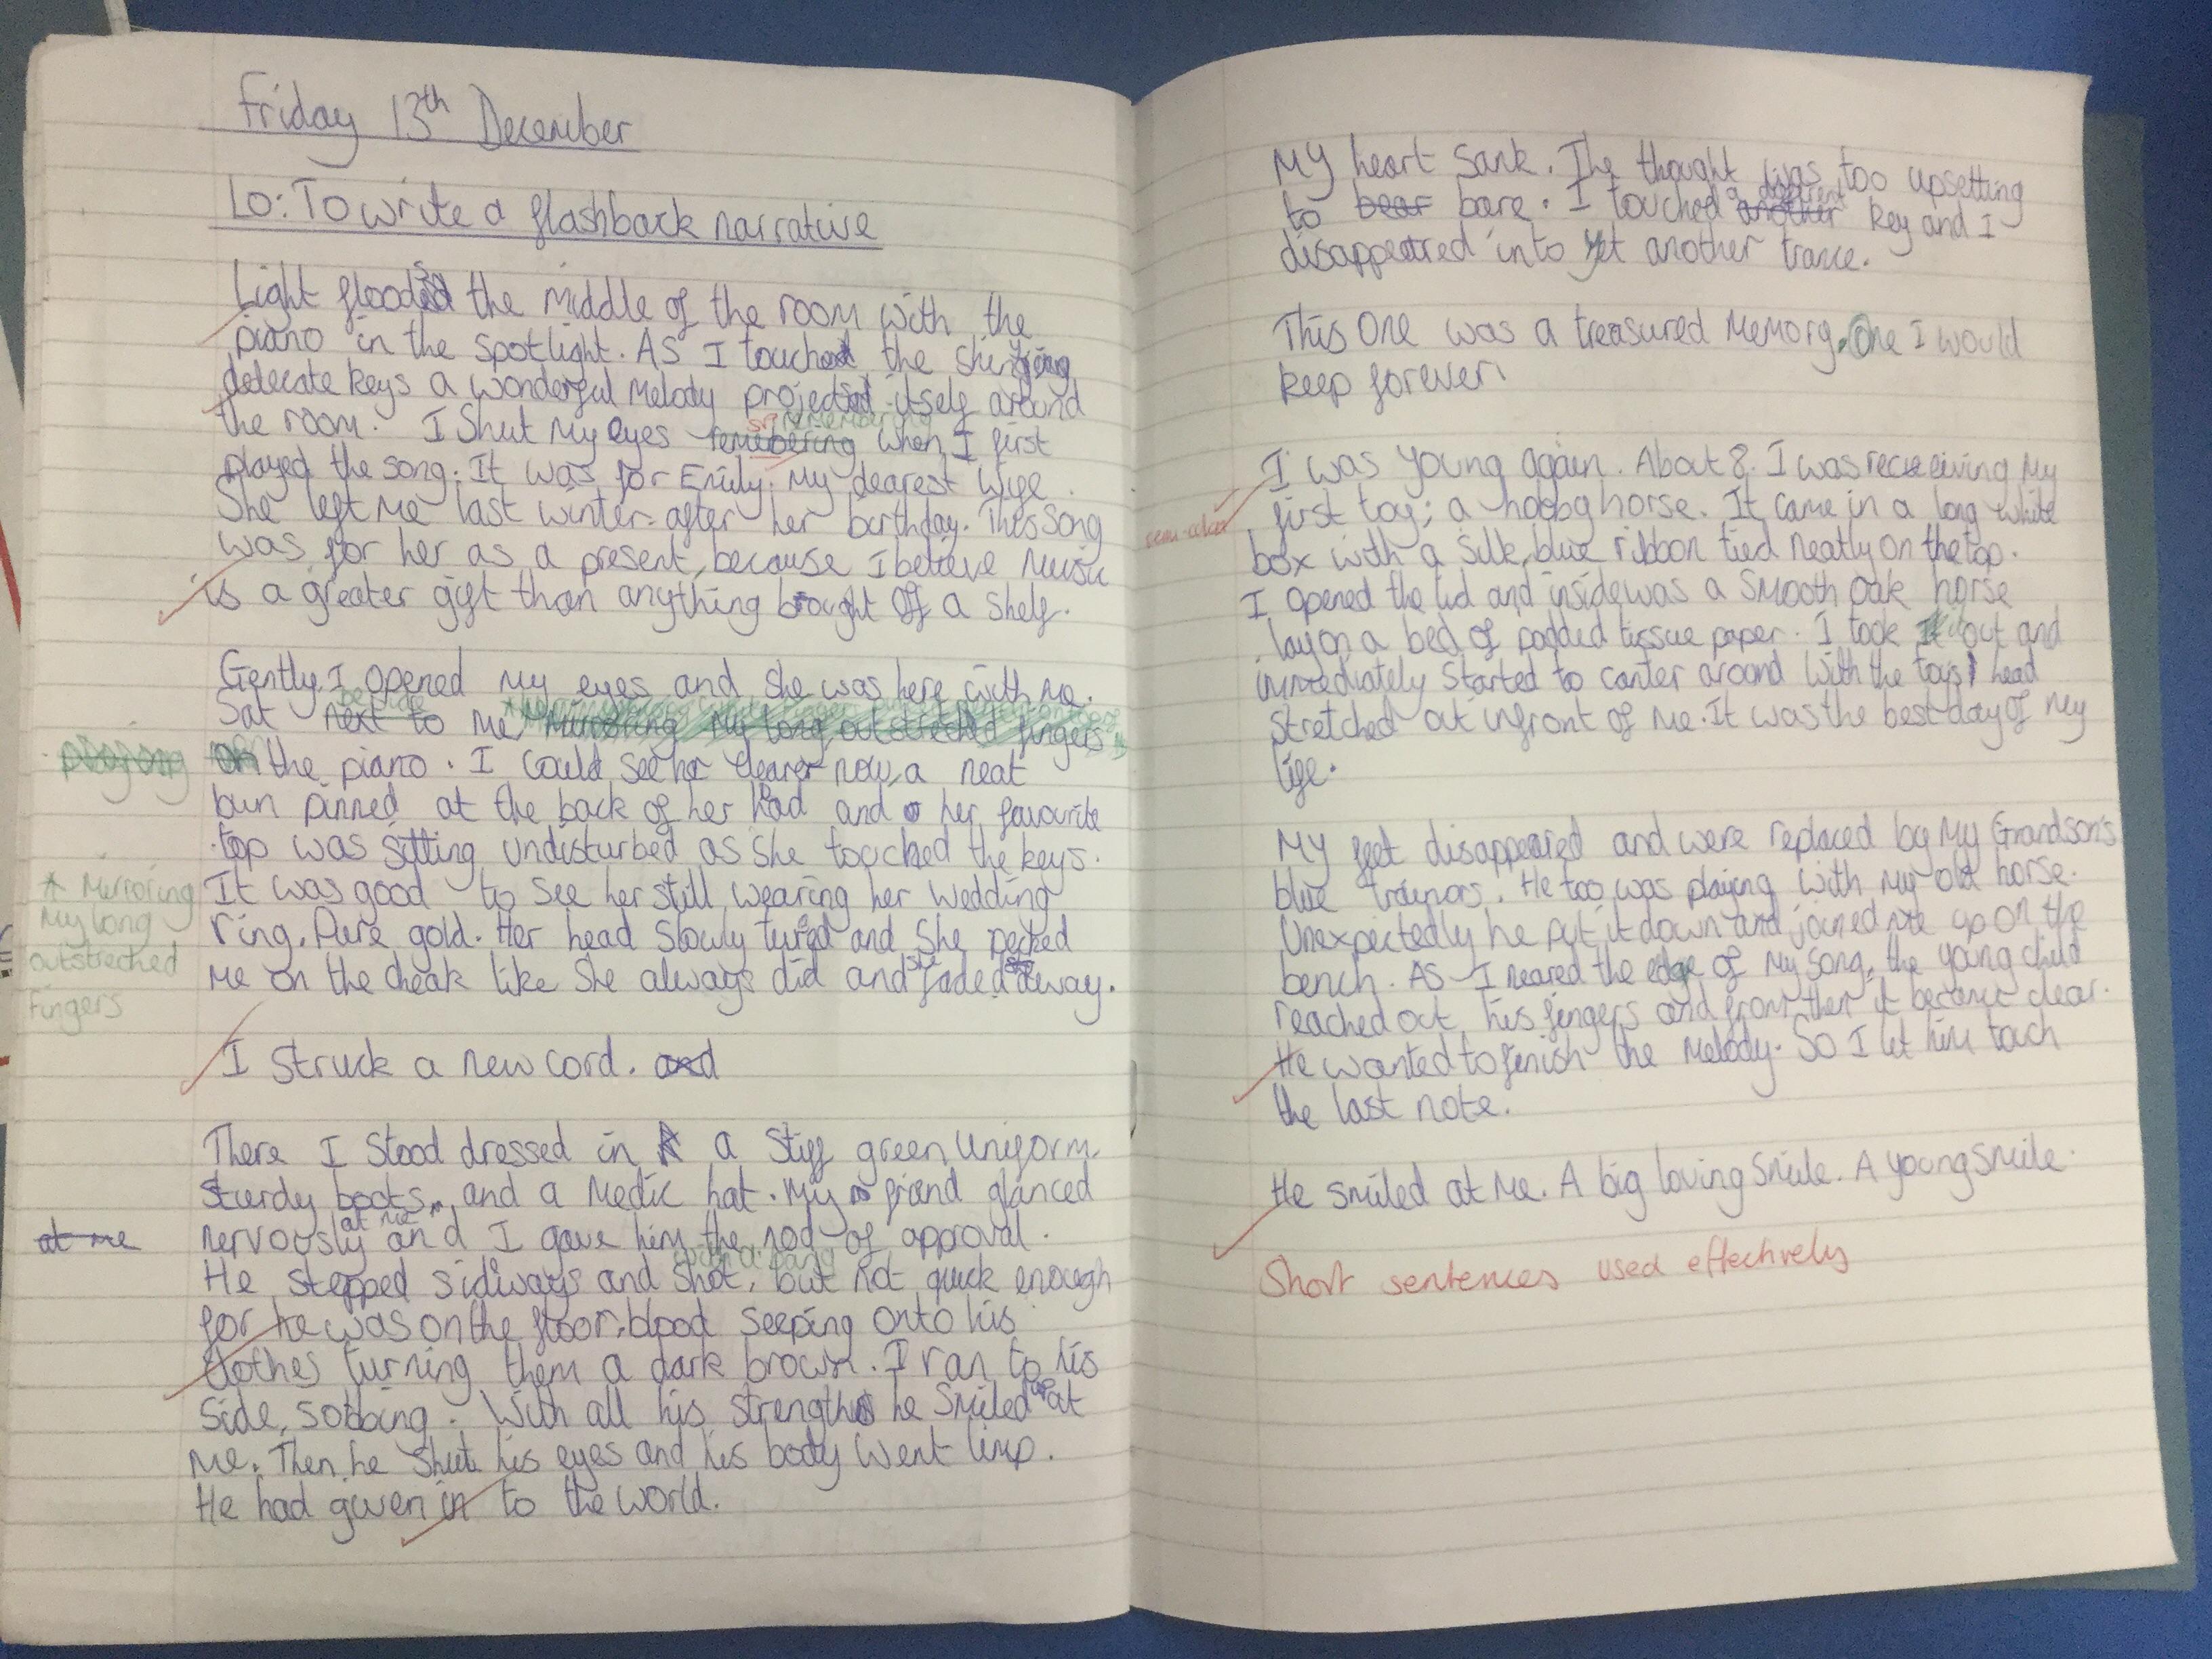 Friday 13th December
Lo: To write a flashback narrative
Light flooded the middle of the room with the
piano in the spotlight. As I touched the
delecate keys a wonderful melody projected itself around
the room. I shut my eyes remembering when I first
played the song. It was for Emily. My dearest wife.
She left me last winter after her birthday. This song
was for her as a present, because I believe music
is a greater gift than anything brought off a shelf.
Gently, I opened my eyes and she was here with me.
Sat beside me
the piano. I could see her clearer now, a neat
bun pinned at the back of her head and her favourite
top was sitting undisturbed as she touched the keys.
* Mirroring
my long
outstreched
fingers
It was good to see her still wearing her wedding
ring. Pure gold. Her head slowly turned and she pecked
me on the cheak like she always did and she faded away.
I struck a new cord.
There I stood dressed in a stiff green uniform,
sturdy boots, and a medic hat. My friend glanced
nervously at me and I gave him the nod of approval.
He stepped sidways and shot, with a bang but not quick enough
for he was on the floor, blood seeping onto his
clothes turning them a dark brown. I ran to his
side, sobbing. With all his strength he smiled up at
me. Then he shut his eyes and his body went limp.
He had given in to the world.
My heart sank. The thought was too upsetting
to bare. I touched a different key and I
disappeared into yet another trance.
This one was a treasured memory. One I would
keep forever.
I was young again. About 8. I was receiving my
semi-colon
first toy; a hobby horse. It came in a long white
box with a silk, blue ribbon tied neatly on the top.
I opened the lid and inside was a smooth oak horse
lay on a bed of padded tissue paper. I took it out and
immediately started to canter around with the toys head
stretched out infront of me. It was the best day of my
life.
My feet disappeared and were replaced by my Grandson's
blue traynors. He too was playing with my old horse.
Unexpectedly he put it down and joined me up on the
bench. As I neared the edge of my song, the young child
reached out his fingers and from then it became clear.
He wanted to finish the melody. So I let him touch
the last note.
He smiled at me. A big loving smile. A young smile.
Short sentences used effectively